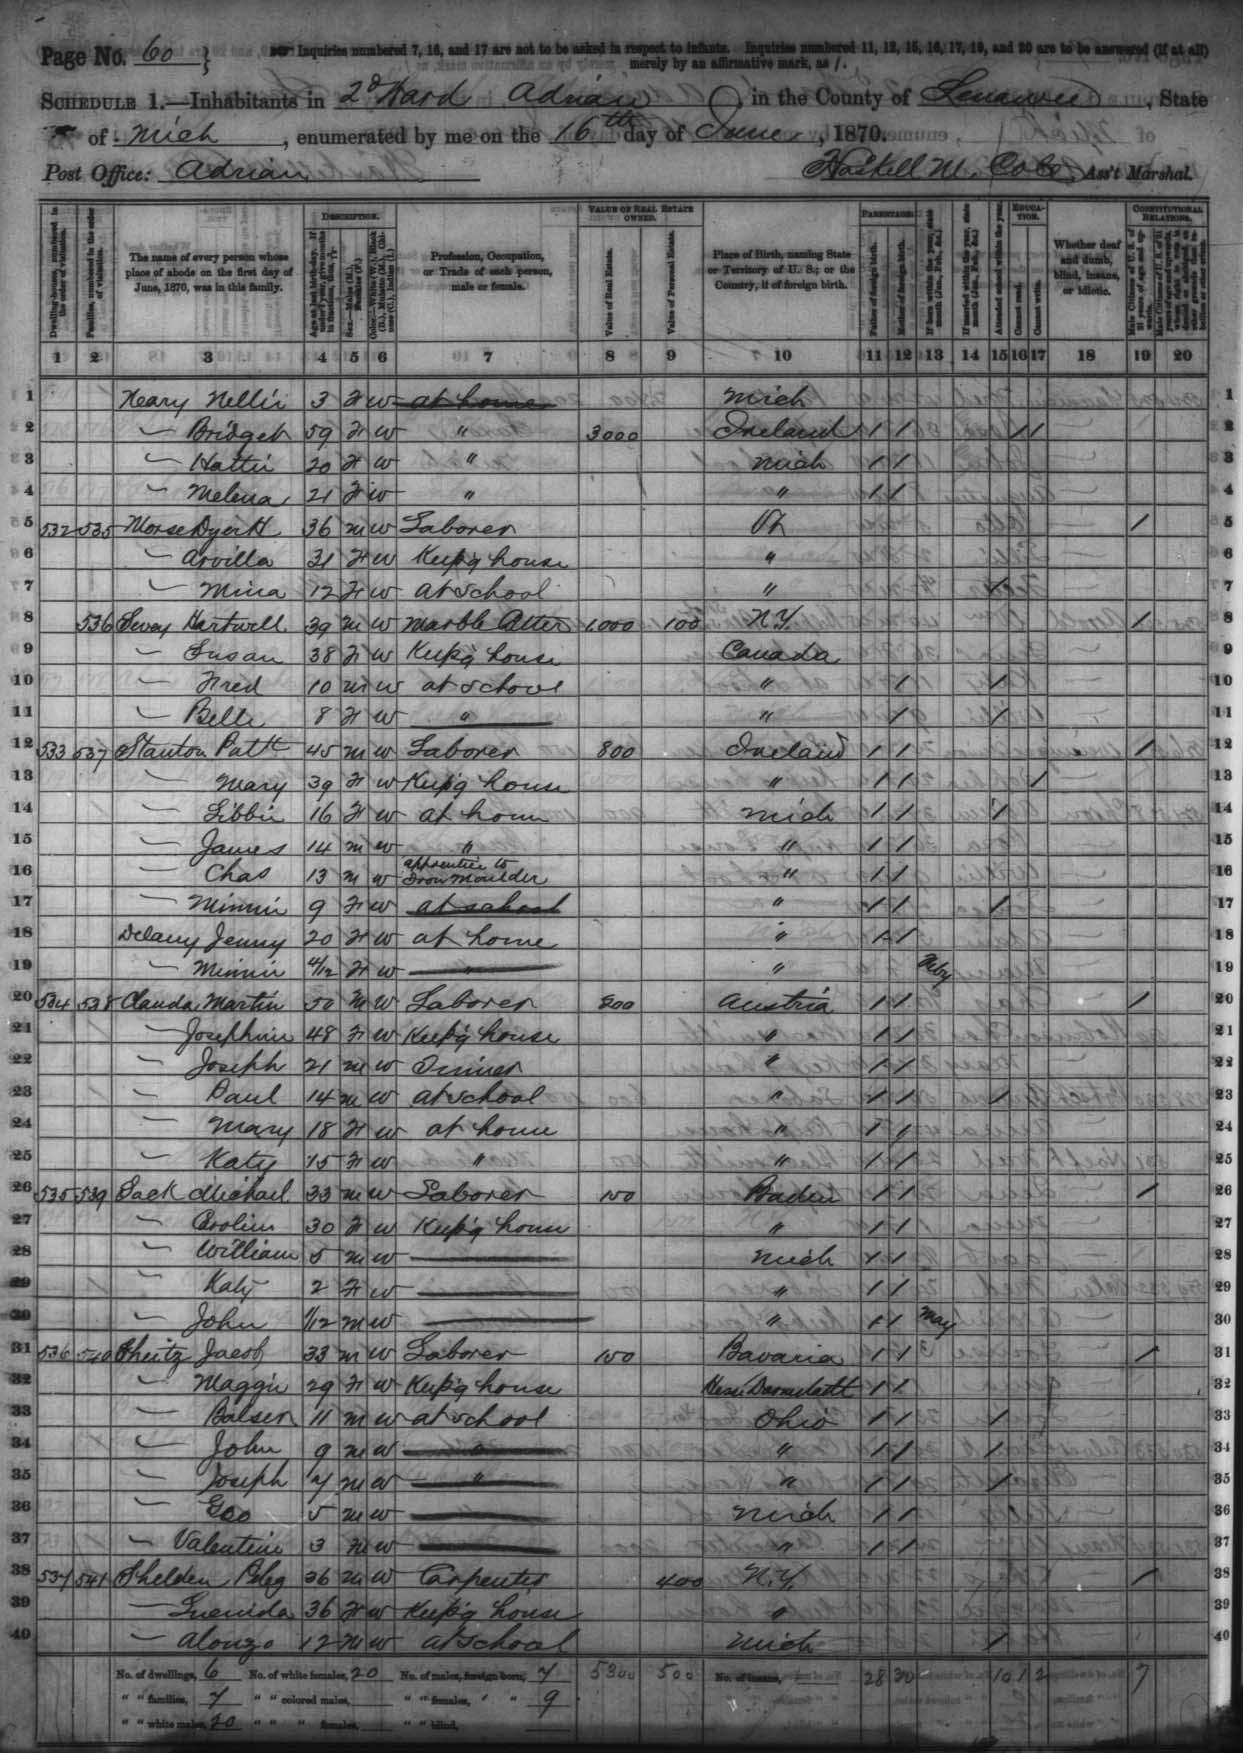 Page No. 60 } Inquiries numbered 7, 16, and 17 are not to be asked in respect to infants. Inquiries numbered 11, 12, 15, 16, 17, 19, and 20 are to be answered (if at all)
merely by an affirmative mark, as /.
SCHEDULE 1.—Inhabitants in 2d Ward Adrian, in the County of Lenawee, State
of Mich, enumerated by me on the 16th day of June, 1870.
Post Office: Adrian Haskell M. Cole, Ass't Marshal.
DESCRIPTION. VALUE OF REAL ESTATE OWNED. PARENTAGE. EDUCATION. CONSTITUTIONAL RELATIONS.
Dwelling-houses, numbered in the order of visitation.
Families, numbered in the order of visitation.
The name of every person whose place of abode on the first day of June, 1870, was in this family.
Profession, Occupation, or Trade of each person, male or female.
Value of Real Estate.
Value of Personal Estate.
Place of Birth, naming State or Territory of U. S.; or the Country, if of foreign birth.
Father of foreign birth.
Mother of foreign birth.
Attended school within the year.
Cannot read.
Cannot write.
Whether deaf and dumb, blind, insane, or idiotic.
1 2 3 4 5 6 7 8 9 10 11 12 13 14 15 16 17 18 19 20
1 Neary Nellie 3 F W at home Mich 1
2 — Bridget 59 F W " 3000 Ireland / / / / 2
3 — Hattie 20 F W " Mich / / 3
4 — Melena 21 F W " " / / 4
5 532 535 Morse Dyer H 36 M W Laborer Vt / 5
6 — Arvilla 31 F W Keep'g house " 6
7 — Mina 12 F W at school " / 7
8 536 Hartwell 39 M W Marble Cutter 1000 100 N.Y. / 8
9 — Susan 38 F W Keep'g house Canada 9
10 — Fred 10 M W at school " / / 10
11 — Belle 8 F W " " / / 11
12 533 537 Stanton Patk 45 M W Laborer 800 Ireland / / / 12
13 — Mary 39 F W Keep'g house " / / / 13
14 — Libbie 16 F W at home Mich / / / 14
15 — James 14 M W " " / / 15
16 — Chas 13 M W apprentice to Iron Moulder " / / 16
17 — Minnie 9 F W at school " / / / 17
18 Delany Jenny 20 F W at home " / / 18
19 — Minnie 4/12 F W " " Feby 19
20 534 538 Clauda Martin 50 M W Laborer 200 Austria / / / 20
21 — Josephine 48 F W Keep'g house " / / 21
22 — Joseph 21 M W Tinner " / / 22
23 — Paul 14 M W at school " / / / 23
24 — Mary 18 F W at home " / / 24
25 — Katy 15 F W " " / / 25
26 535 539 Sack Michael 33 M W Laborer 150 Baden / / / 26
27 — Caroline 30 F W Keep'g house " / / 27
28 — William 5 M W Mich / / 28
29 — Katy 2 F W " / / 29
30 — John 1/12 M W " / / May 30
31 536 540 Sheitz Jacob 33 M W Laborer 150 Bavaria / / / 31
32 — Maggie 29 F W Keep'g house Hesse Darmstadt / / 32
33 — Balser 11 M W at school Ohio / / / 33
34 — John 9 M W " " / / / 34
35 — Joseph 7 M W " " / / / 35
36 — Geo 5 M W " Mich / / / 36
37 — Valentine 3 M W " / / 37
38 537 541 Shelden Peleg 36 M W Carpenter 400 N.Y. / 38
39 — 36 F W Keep'g house " 39
40 — Alonzo 12 M W at school Mich / 40
No. of dwellings, 6 No. of white females, 20 No. of males, foreign born, 7 5300 500 No. of insane, 28 30 10 1 2 7
" " families, 7 " " colored males, " " females, " " 9
" " white males, 20 " " " females, " " blind,